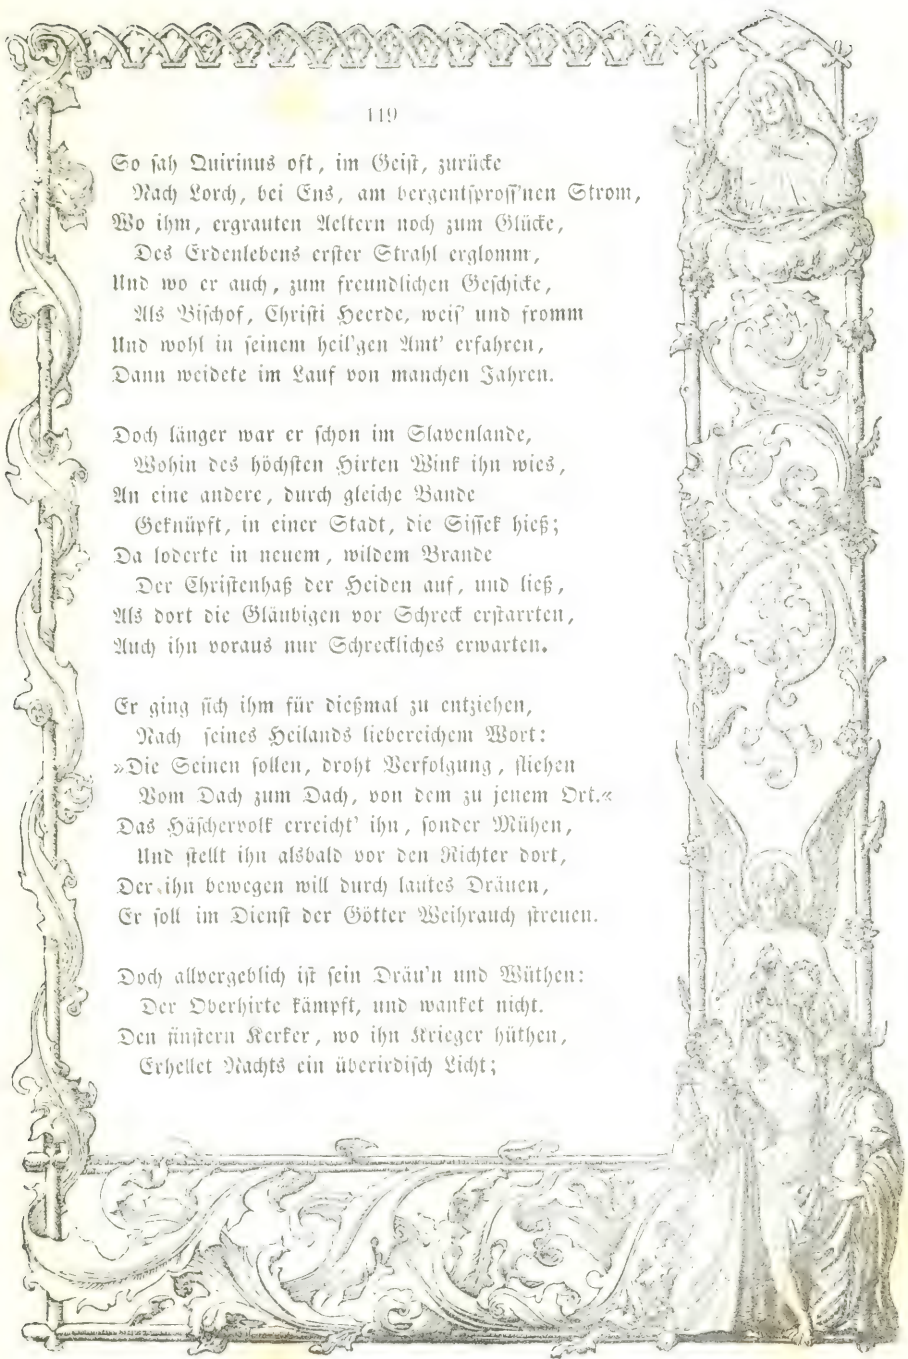 119
So sah Quirinus oft, im Geist, zurücke
Nach Lorch, bei Ens, am bergentspross'nen Strom,
Wo ihm, ergrauten Aeltern noch zum Glücke,
Des Erdenlebens erster Strahl erglomm,
Und wo er auch, zum freundlichen Geschicke,
Als Bischof, Christi Heerde, weis' und fromm
Und wohl in seinem heil'gen Amt' erfahren,
Dann weidete im Lauf von manchen Jahren.
Doch länger war er schon im Slavenlande,
Wohin des höchsten Hirten Wink ihn wies,
An eine andere, durch gleiche Bande
Geknüpft, in einer Stadt, die Sissek hieß;
Da loderte in neuem, wildem Brande
Der Christenhaß der Heiden auf, und ließ,
Als dort die Gläubigen vor Schreck erstarrten,
Auch ihn voraus nur Schreckliches erwarten.
Er ging sich ihm für dießmal zu entziehen,
Nach seines Heilands liebereichem Wort:
»Die Seinen sollen, droht Verfolgung, fliehen
Vom Dach zum Dach, von dem zu jenem Ort.«
Das Häschervolk erreicht' ihn, sonder Mühen,
Und stellt ihn alsbald vor den Richter dort,
Der ihn bewegen will durch lautes Dräuen,
Er soll im Dienst der Götter Weihrauch streuen.
Doch allvergeblich ist sein Dräu'n und Wüthen:
Der Oberhirte kämpft, und wanket nicht.
Den finstern Kerker, wo ihn Krieger hüthen,
Erhellet Nachts ein überirdisch Licht;